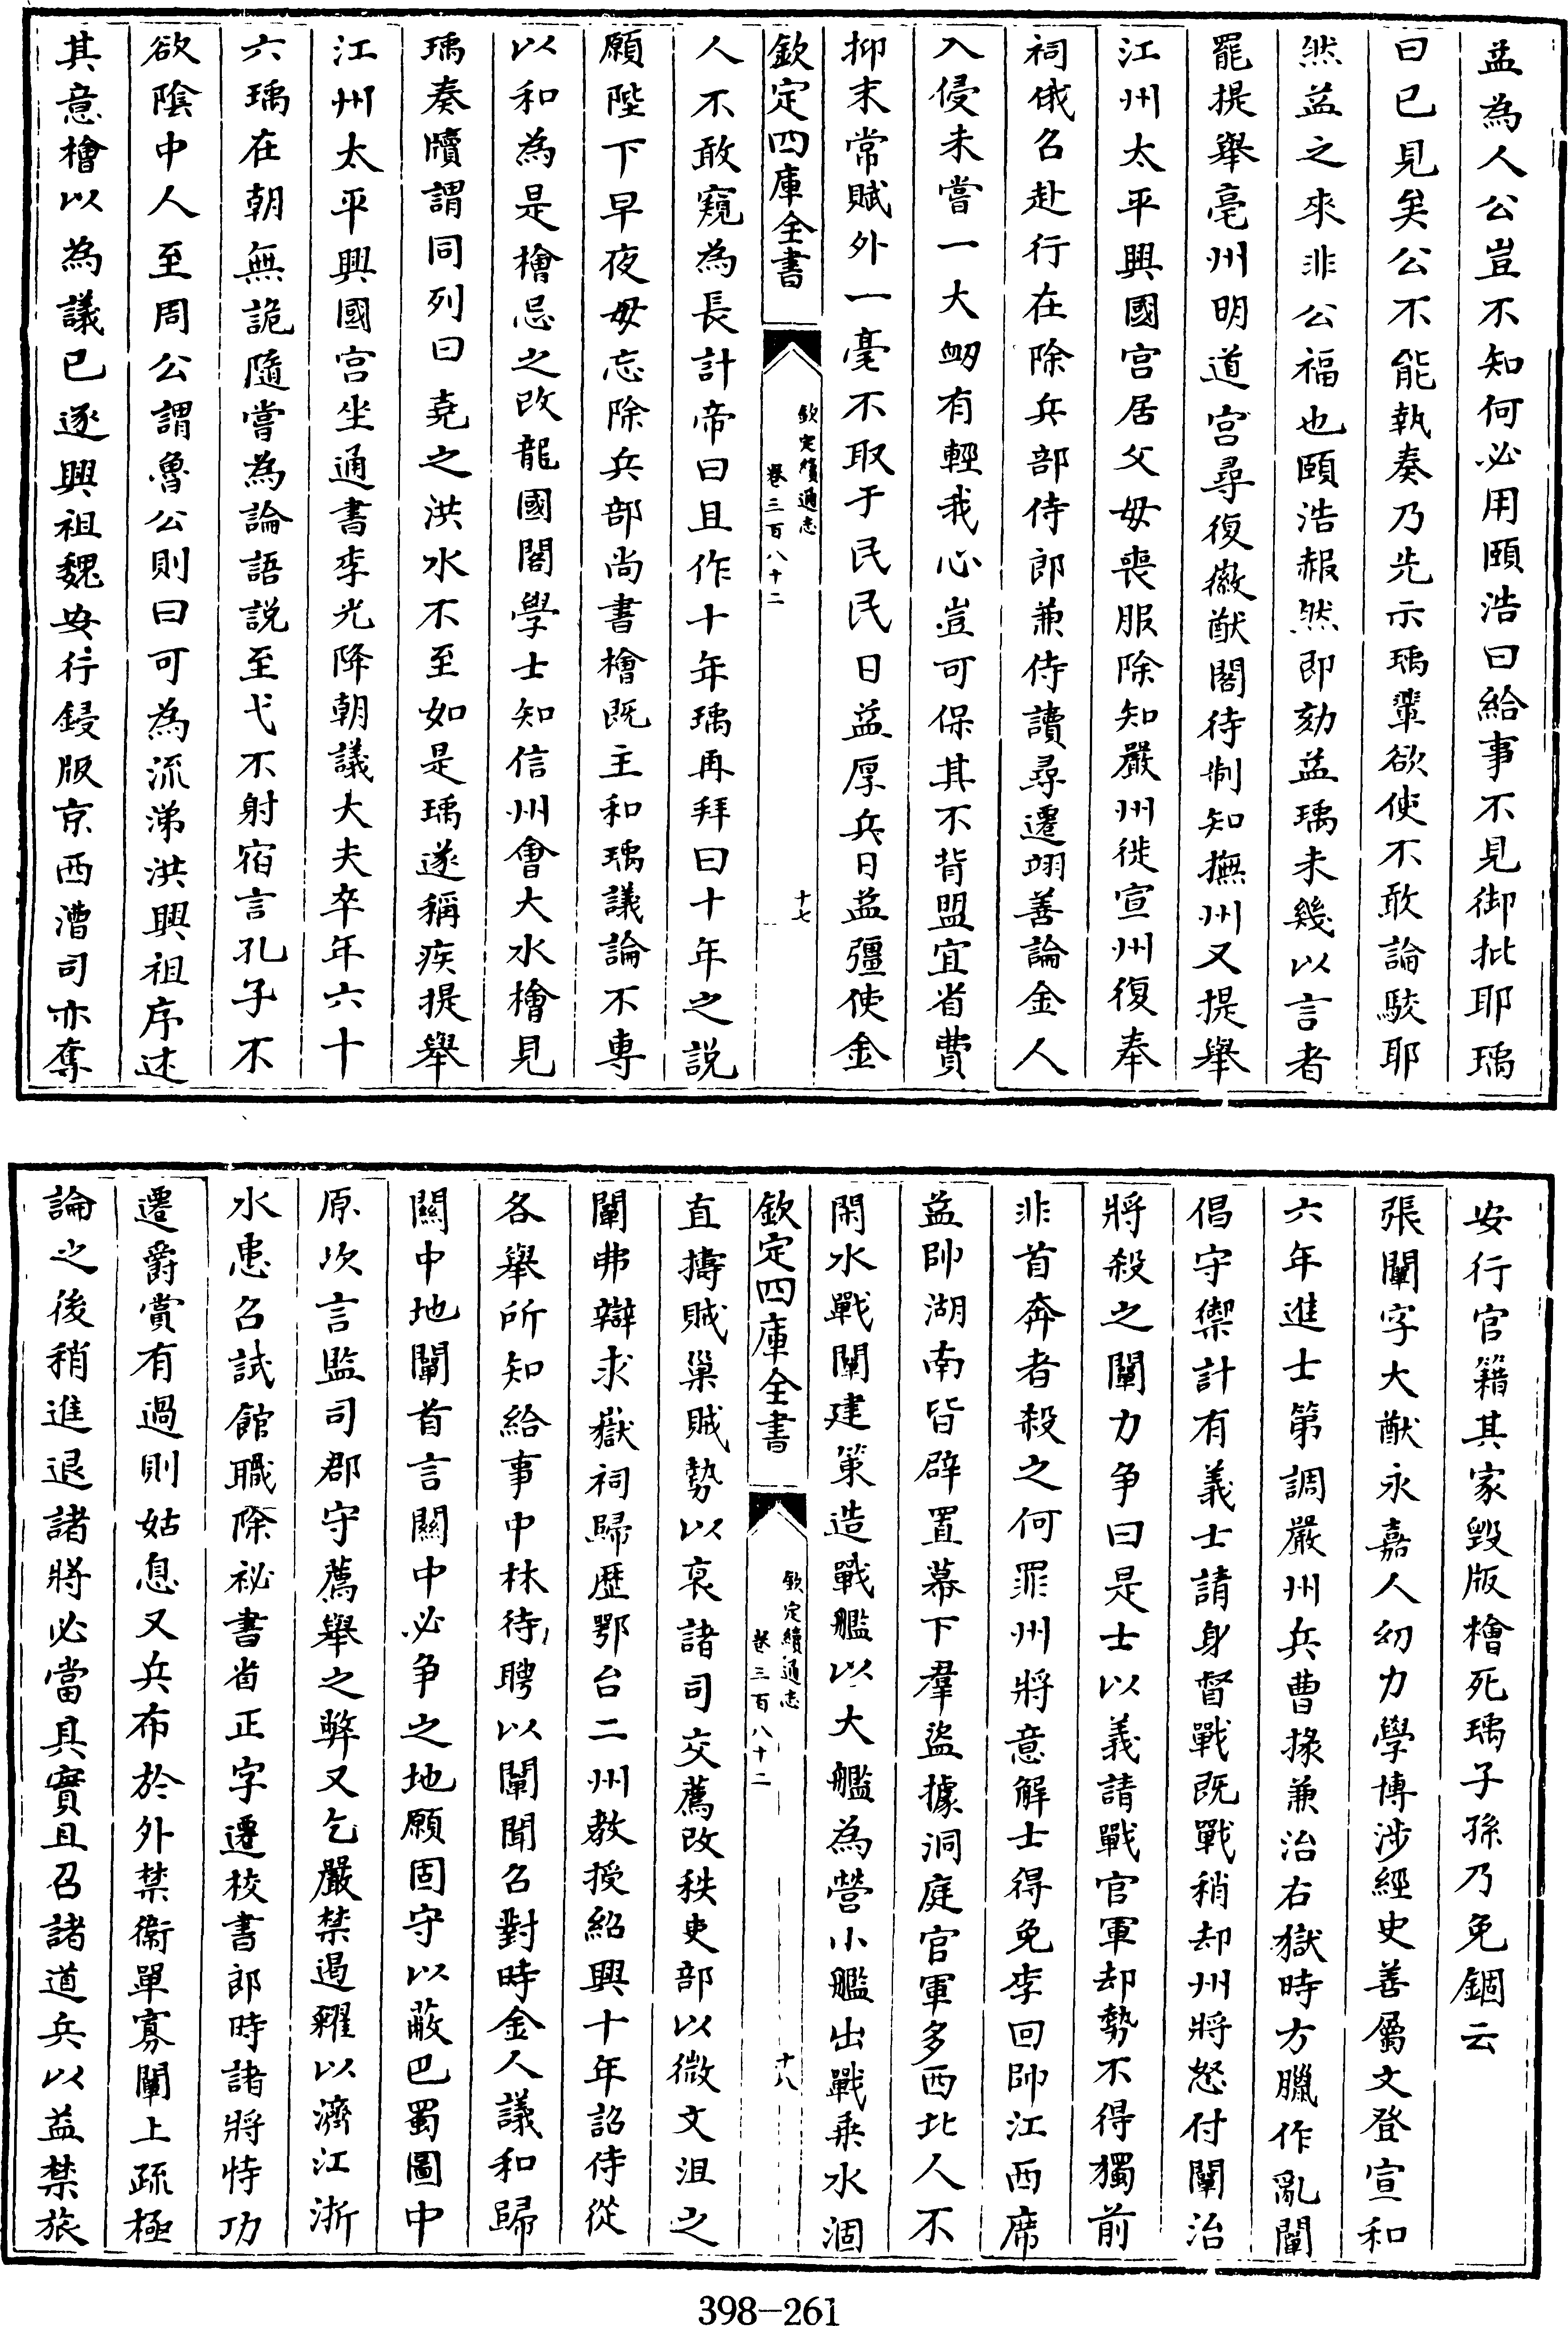 益為人公豈不知何必用頤浩曰給事不見御批耶瑀
曰已見矣公不能執奏乃先示瑀輩欲使不敢論駮耶
然益之來非公福也頤浩赧然即劾益瑀未幾以言者
罷提舉亳州明道宮尋復徽猷閣待制知撫州又提舉
江州太平興國宮居父母喪服除知嚴州徙宣州復奉
祠俄召赴行在除兵部侍郎兼侍讀尋遷翊善論金人
入侵未嘗一大衂有輕我心豈可保其不背盟宜省費
抑末常賦外一毫不取于民民日益厚兵日益彊使金
欽定四庫全書
欽定續通志
卷三百八十二
十七
人不敢窺為長計帝曰且作十年瑀再拜曰十年之説
願陛下早夜毋忘除兵部尚書檜既主和瑀議論不專
以和為是檜忌之改龍國閣學士知信州會大水檜見
瑀奏牘謂同列曰堯之洪水不至如是瑀遂稱疾提舉
江州太平興國宮坐通書李光降朝議大夫卒年六十
六瑀在朝無詭隨嘗為論語説至弋不射宿言孔子不
欲陰中人至周公謂魯公則曰可為流涕洪興祖序述
其意檜以為議已逐興祖魏安行鋟版京西漕司亦奪
安行官籍其家毀版檜死瑀子孫乃免錮云
張闡字大猷永嘉人幼力學博涉經史善屬文登宣和
六年進士第調嚴州兵曹掾兼治右獄時方臘作亂闡
倡守禦計有義士請身督戰既戰稍却州將怒付闡治
將殺之闡力爭曰是士以義請戰官軍却勢不得獨前
非首奔者殺之何罪州將意解士得免李回帥江西席
益帥湖南皆辟置幕下羣盜據洞庭官軍多西北人不
閑水戰闡建策造戰艦以大艦為營小艦出戰乗水涸
欽定四庫全書
欽定續通志
卷三百八十二
十八
直擣賊巢賊勢以衰諸司交薦改秩吏部以微文沮之
闡弗辯求嶽祠歸歴鄂台二州教授紹興十年詔侍從
各舉所知給事中林待聘以闡聞召對時金人議和歸
關中地闡首言關中必爭之地願固守以蔽巴蜀圖中
原次言監司郡守薦舉之弊又乞嚴禁遏糴以濟江浙
水患召試館職除祕書省正字遷校書郎時諸將恃功
遷爵賞有過則姑息又兵布於外禁衞單寡闡上疏極
論之後稍進退諸將必當具實且召諸道兵以益禁旅
398-261